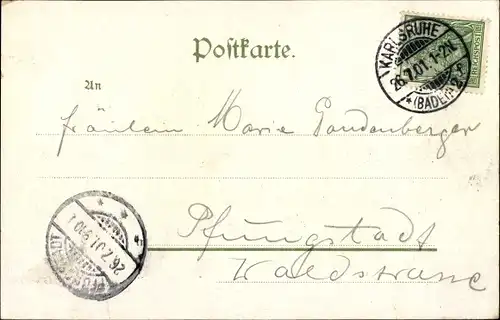 Postkarte.
KARLSRUHE
26.7.01.1-2N.
*(BADEN)
REICHSPOST
An
Fräulein Marie Pandenberger
Pfungstadt
Waldstrasse
26.7.01